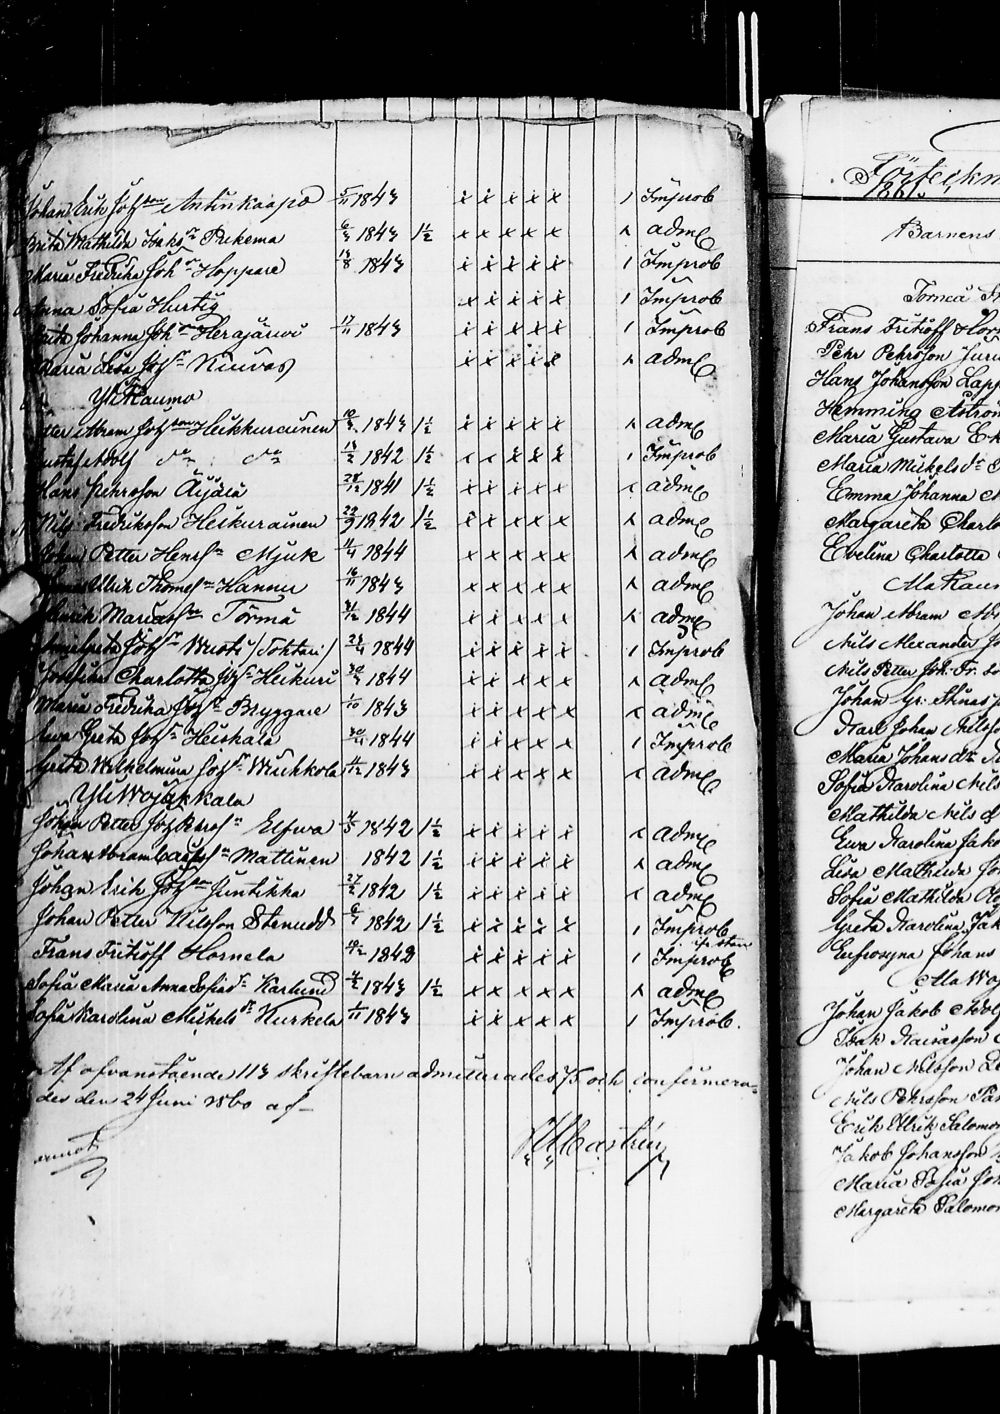 Johan Erik Joh:son Antinkaapo 5/11 1843 x x x x x 1 Improb
Brita Mathilda Isaks dr Rekema 6/3 1843 1½ x x x x x x adm
Maria Fredrika Joh dr Hoppare 13/8 1843 x x x x x 1 Improb
Anna Sofia Hurtig x x x x x 1 Improb
Greta Johanna Joh dr Herajärwi 17/11 1843 x x x x x 1 Improb
Maria Lisa Joh dr Niuvas x x x x x x adm
Yli Raumo
Petter Abram Joh son Heikkurainen 10/3 1843 1½ x x x x x x adm
Gustaf Adolf do do 13/2 1842 1½ x x x x x 1 Improb
Hans Pehrsson Äijälä 28/12 1841 1½ x x x x x x adm
Nils Fredriksson Heikurainen 22/9 1842 1½ x x x x x x adm
Johan Petter Hens sn Mjuk 11/4 1844 x x x x x x adm
Ullrik Thomas sn Hannu 16/11 1843 x x x x x x adm
Henrik Mariason Törmä 21/2 1844 x x x x x x adm
Greta Joh dr Wuoti /Tohtari/ 24/4 1844 x x x x x 1 Improb
Josefina Charlotta Joh dr Heikuri 30/3 1844 x x x x x x adm
Maria Fredrika Joh dr Bryggare 1/10 1843 x x x x x x adm
Ewa Greta Joh dr Heiskala 30/4 1844 x x x x x 1 Improb
Greta Wilhelmina Joh dr Wuhkola 11/12 1843 x x x x x x adm
Yli Wojakkala
Johan Petter Joh Ersson Elfwa 4/5 1842 1½ x x x x x x adm
Johan Abram Mattinen 1842 1½ x x x x x x adm
Johan Erik Joh son Juntikka 27/2 1842 1½ x x x x x x adm
Johan Petter Nilsson Stenudd 6/7 1842 1½ x x x x x 1 Improb
Frans Frithoff Hornela 1843 x x x x x 1 Improb
Sofia Maria Anna Sofias dr Karlund 4/2 1843 1½ x x x x x x adm
Sofia Karolina Mickels dr Kurkela 1/11 1843 x x x x x 1 Improb.
Af ofvanstående 113 skriftebarn admitterades 75 och confirmera-
des den 24 Juni 1860 af
Castrén
Förteckn
1861.
Barnens
Torneå
Frans Frithoff Horn
Pehr Pehrsson Juru
Hans Johansson Lapp
Hemming Åström
Maria Gustava E
Maria Mickels dr
Emma Johanna
Margareta Charlo
Evelina Charlotta
Ala Raum
Johan Abram
Nils Alexander Jo
Nils Petter Joh. Fr. so
Johan Gr.
Karl Johan Nilsso
Maria Johans dr
Sofia Karolina Nils
Mathilda Nils d
Ewa Karolina Jako
Lisa Mathilda Jo
Sofia Mathilda Olo
Greta Karolina Jak
Eufrosyna Johans
Ala Woj
Johan Jakob Adolf
Isak Kaisasson
Johan Nilsson Le
Nils Pehrsson
Erik Ulrik Salomo
Jakob Johansson
Maria Sofia Joh
Margareta Salomo